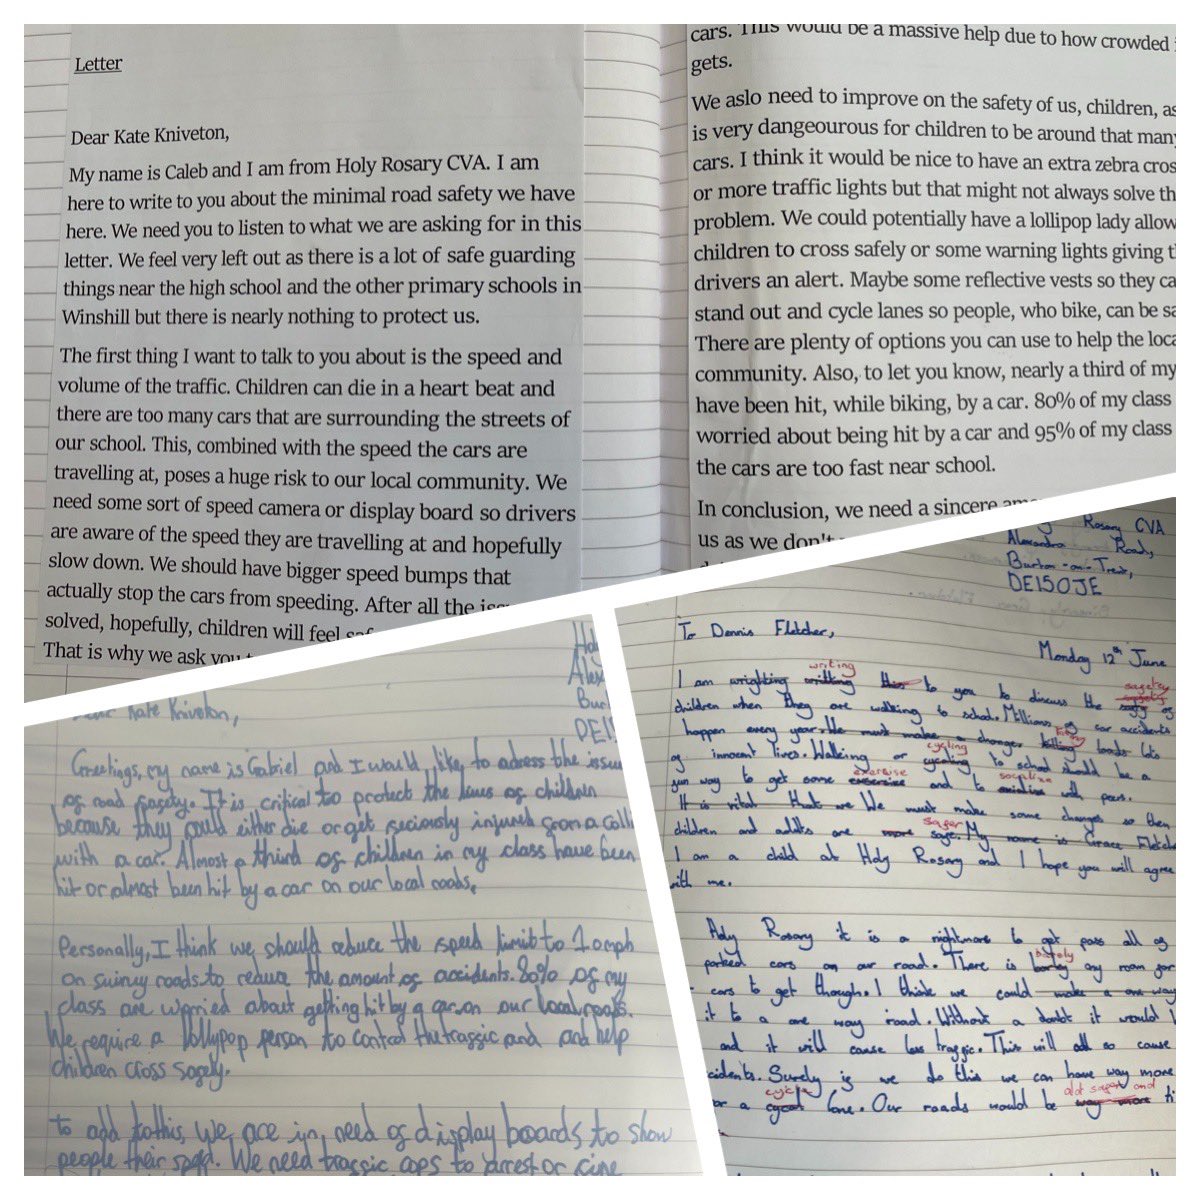 Letter
Dear Kate Kniveton,
My name is Caleb and I am from Holy Rosary CVA. I am
here to write to you about the minimal road safety we have
here. We need you to listen to what we are asking for in this
letter. We feel very left out as there is a lot of safe guarding
things near the high school and the other primary schools in
Winshill but there is nearly nothing to protect us.
The first thing I want to talk to you about is the speed and
volume of the traffic. Children can die in a heart beat and
there are too many cars that are surrounding the streets of
our school. This, combined with the speed the cars are
travelling at, poses a huge risk to our local community. We
need some sort of speed camera or display board so drivers
are aware of the speed they are travelling at and hopefully
slow down. We should have bigger speed bumps that
actually stop the cars from speeding. After all the
solved, hopefully, children will feel
That is why we ask you
cars. This would be a massive help due to how crowded
gets.
We aslo need to improve on the safety of us, children, as
is very dangeourous for children to be around that many
cars. I think it would be nice to have an extra zebra cros
or more traffic lights but that might not always solve th
problem. We could potentially have a lollipop lady allow
children to cross safely or some warning lights giving t
drivers an alert. Maybe some reflective vests so they ca
stand out and cycle lanes so people, who bike, can be sa
There are plenty of options you can use to help the loca
community. Also, to let you know, nearly a third of my
have been hit, while biking, by a car. 80% of my class
worried about being hit by a car and 95% of my class
the cars are too fast near school.
In conclusion, we need a sincere
us as we don't
Hol
Alex
Bur
DE1
Kate Kniveton,
Greetings, my name is Gabriel and I would like to adress the issue
of road safety. It is critical to protect the lives of children
because they could either die or get seciously injured from a colli
with a car. Almost a third of children in my class have been
hit or almost been hit by a car on our local roads,
Personally, I think we should reduce the speed limit to 10mph
on swirvy roads to reduce the amount of accidents. 80% of my
class are worried about getting hit by a car on our local roads.
We require a lollypop person to control the traffic and and help
children cross safely.
to add to this, We are in need of display boards to show
people their speed. We need traffic cops to arrest or fine
Rosary CVA
Alexandra Road,
Burton-on-Trent,
DE150JE
To Dennis Fletcher,
Monday 12th June
writing safety
I am wrighting to you to discuss the of
children when they are walking to school. Millions of car accidents
happen every year. We must make a change. killing loads lots
cycling
of innocent lives. Walking or to school should be a
exercise socialise
fun way to get some and to with peers.
It is vital that we We must make some changes so then
safer
children and adults are more safe. My name is Grace Fletche
I am a child at Holy Rosary and I hope you will agree
with me.
Holy Rosary it is a nightmare to get pass all of
barely
parked cars on our road. There is any room for
cars to get though. I think we could make a one way
it to a one way road. Without a doubt it would
and it will cause less traffic. This will all so cause
cidents. Surely if we do this we can have way more
cycle alot safer and
or a lane. Our roads would be way more